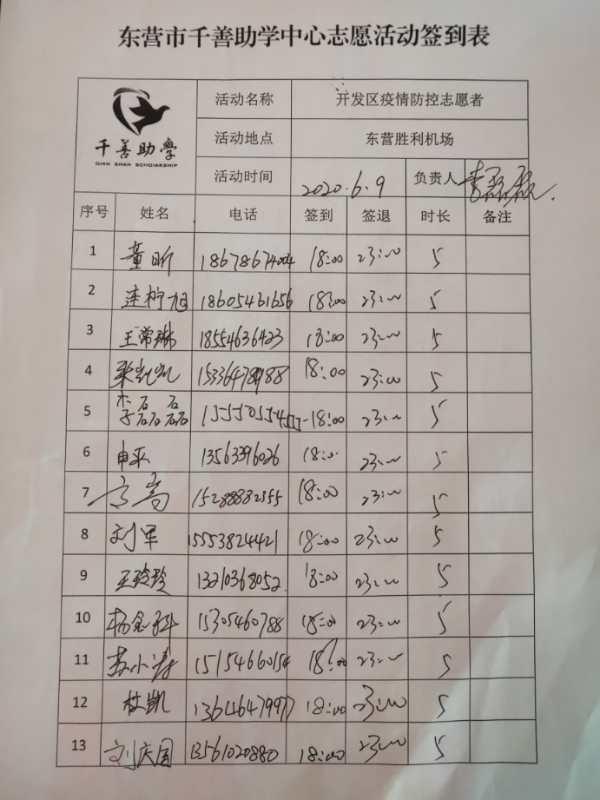 东营市千善助学中心志愿活动签到表
千善助學
QIAN SHAN SCHOLARSHIP
活动名称 开发区疫情防控志愿者
活动地点 东营胜利机场
活动时间 2020.6.9 负责人 李磊磊
序号 姓名 电话 签到 签退 时长 备注
1 董昕 18678674004 18:00 23:00 5
2 18605461656 18:00 23:00 5
3 王常琳 18554636423 18:00 23:00 5
4 18:00 23:00 5
5 李磊磊 18:00 23:00 5
6 申平 13563396026 18:00 23:00 5
7 15288882355 18:00 23:00 5
8 刘军 15553824421 18:00 23:00 5
9 王玲玲 13210368052 18:00 23:00 5
10 15305460788 18:00 23:00 5
11 苏小涛 15154660154 18:00 23:00 5
12 杜凯 13646479977 18:00 23:00 5
13 刘庆国 13561020880 18:00 23:00 5